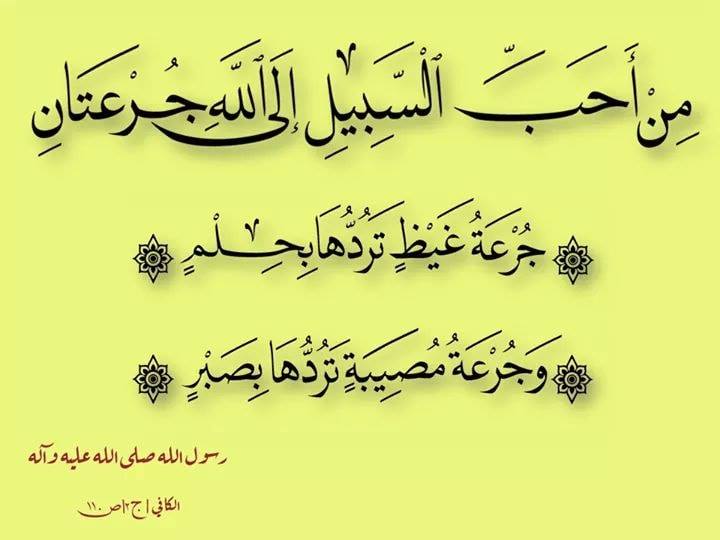 مِنْ أَحَبِّ ٱلْسَّبِيلِ إِلَى ٱللَّهِ جُرْعَتَانِ
جُرْعَةُ غَيْظٍ تَرُدُّهَا بِحِلْمٍ
وَجُرْعَةُ مُصِيبَةٍ تَرُدُّهَا بِصَبْرٍ
رسول الله صلى الله عليه وآله
الكافي | ج٢ | ص ١١٠